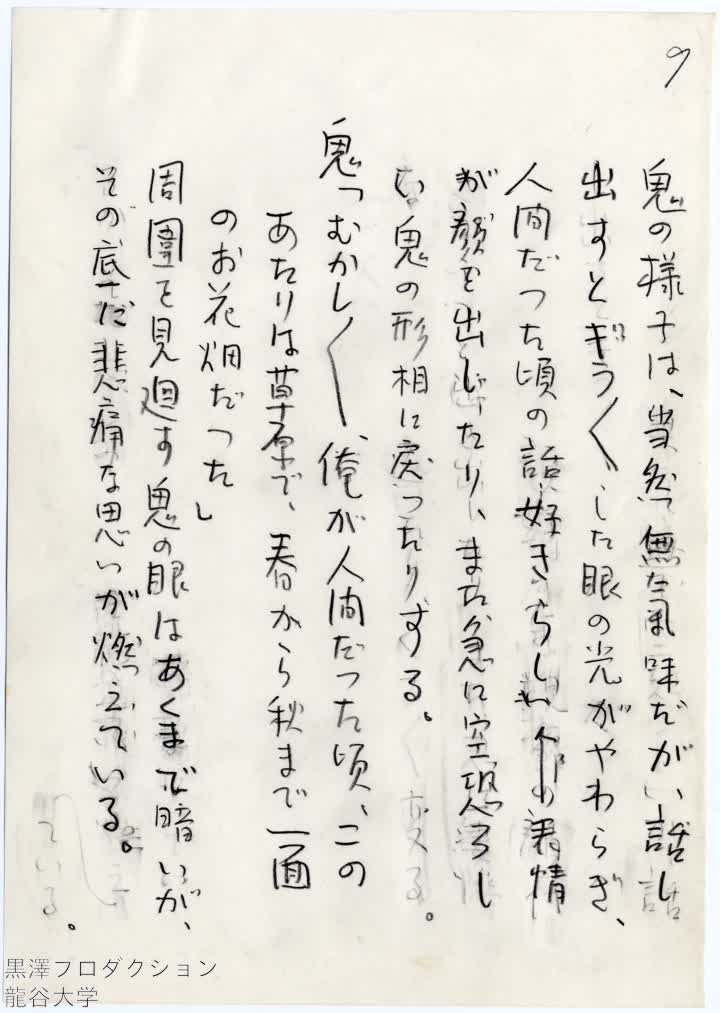 9
鬼の様子は、当然無気味だが、話し
出すとぎら〱した眼の光がやわらぎ、
人間だった頃の話好きらしい表情
が顔を出したり、また急に空恐ろし
い鬼の形相に戻ったりする。
鬼「むかし〱、俺が人間だった頃、この
あたりは草原で、春から秋まで一面
のお花畑だった」
周囲を見廻す鬼の眼はあくまで暗いが、
その底に悲痛な思いが燃えている。
黒澤プロダクション
龍谷大学